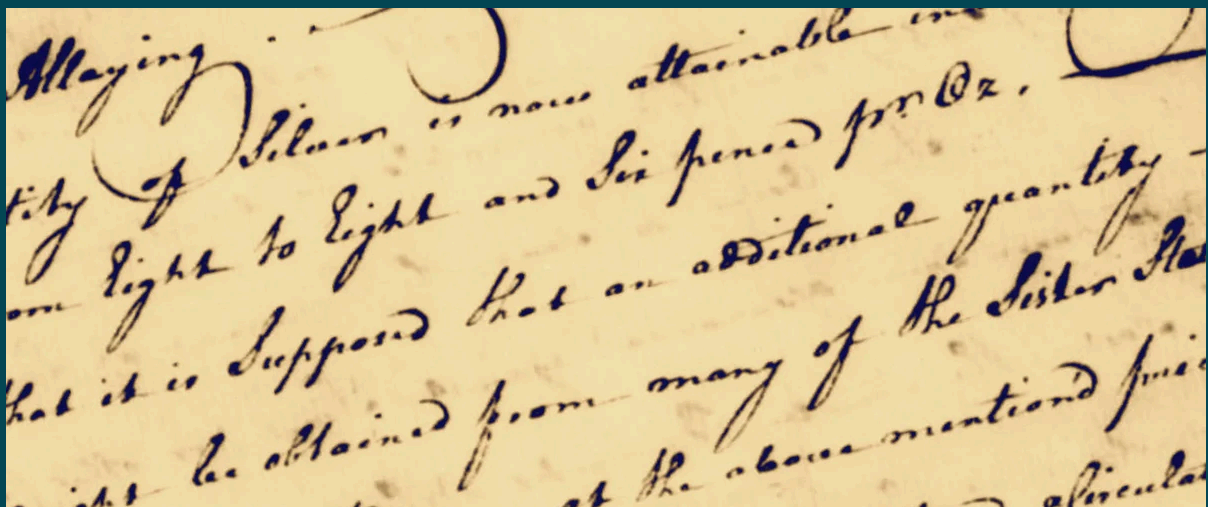 Allaying
tity of Silver is now attainable in
om Eight to Eight and Six pence pr Oz.
that it is Supposed that an additional quantity -
ight be obtained from many of the Sister Stat
at the above mention'd pric